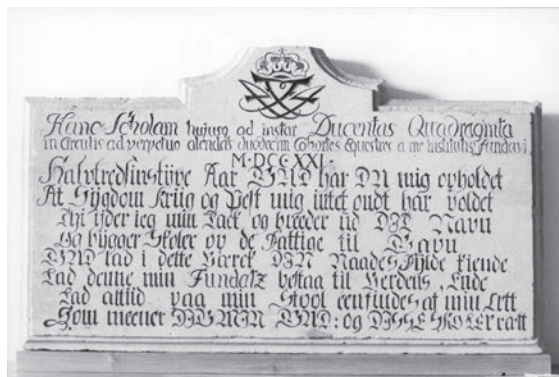 Hanc Scholam hujusq ad instar Ducentas Quadraginta
in Circulis ad perpetuo alendas duodecim Cohortes Equestres a me institutis Fundavi
M·DCC·XXI·
Halvtredsinstÿve Aar GUD har DU mig opholdet
At Sÿgdom Kriig og Pest mig intet ondt har voldet
Thi ÿder ieg min Tack og breeder ud DIT Navn
Og bÿgger Skoler op de Fattige til Gavn
GUD lad i dette Værck DIN Naades Fÿlde kiende
Lad denne min Fundatz bestaa til Verdens Ende
Lad altiid paa min Stool een findes af min Ætt
Som meener DIG MIN GUD: og DISSE SKOLER rætt